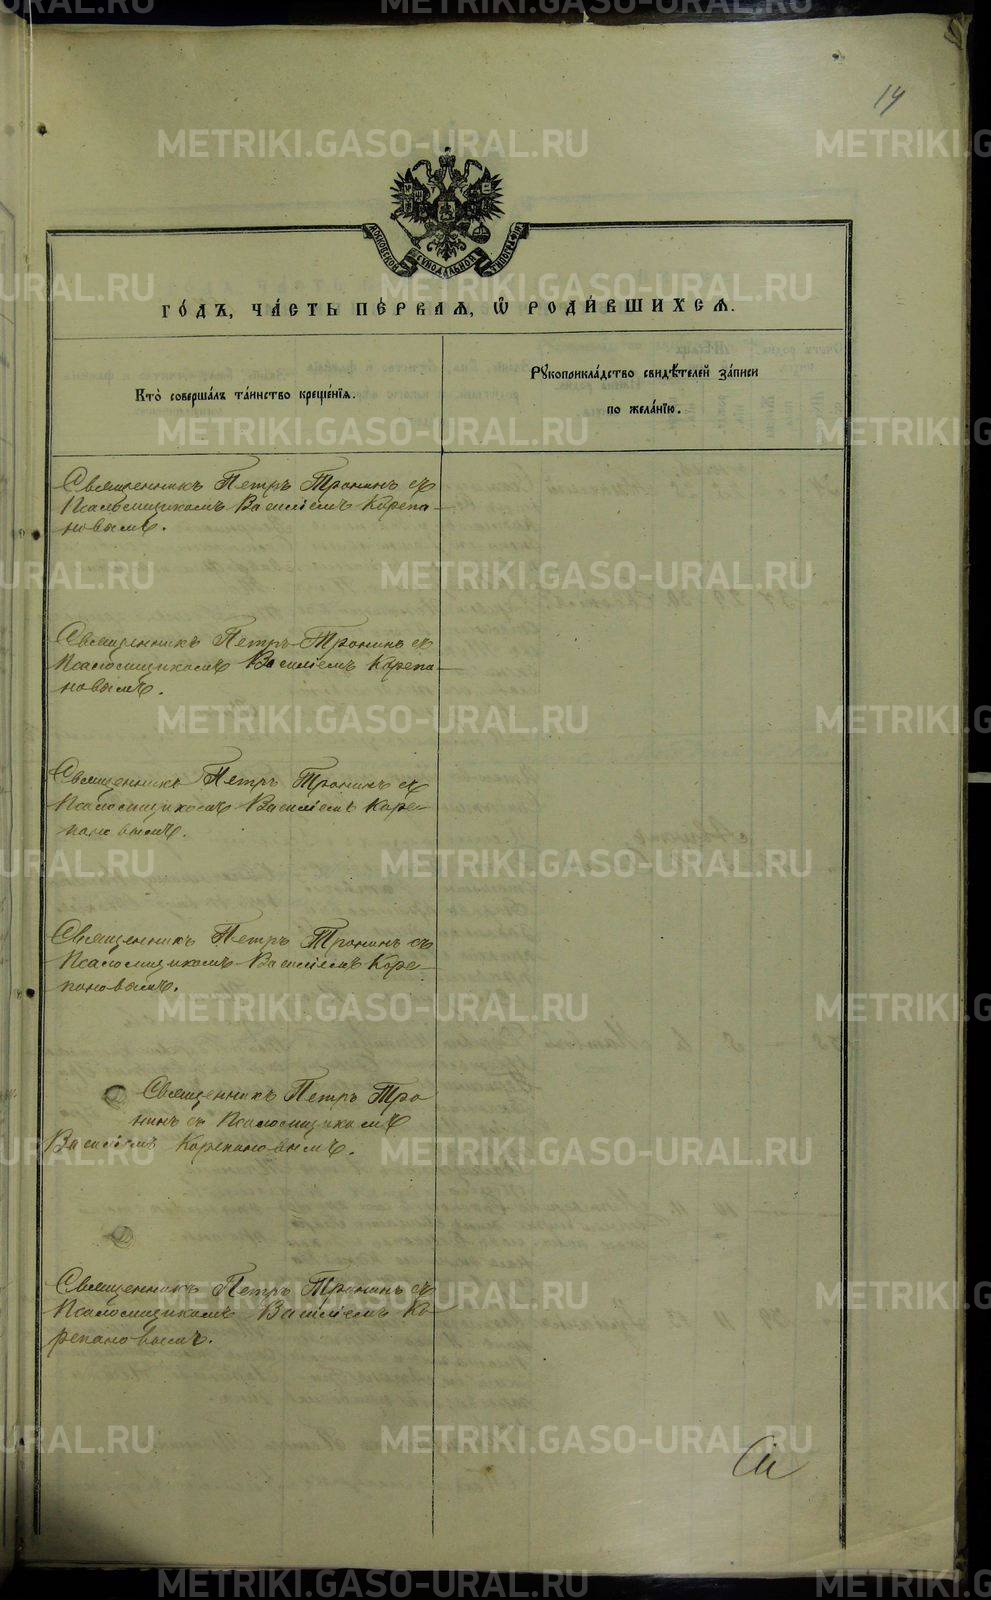 14
МОСКОВСКОЙ СѴНОДАЛЬНОЙ ТИПОГРАФІИ
ГО́ДЪ, ЧА́СТЬ ПЕ́РВАЯ, Ѽ РОДИ́ВШИХСЯ.
Кто̀ соверша́лъ та́инство креще́нїѧ.
Рꙋкоприкла́дство свидѣ́телей за́писи
по жела́нїю.
Священникъ Петръ Тронинъ съ
Псаломщикомъ Василіемъ Корепа-
новымъ.
Священникъ Петръ Тронинъ съ
Псаломщикомъ Василіемъ Корепа-
новымъ.
Священникъ Петръ Тронинъ съ
Псаломщикомъ Василіемъ Коре-
пановымъ.
Священникъ Петръ Тронинъ съ
Псаломщикомъ Василіемъ Коре-
пановымъ.
Священникъ Петръ Тро
нинъ съ Псаломщикомъ
Василіемъ Корепановымъ.
Священникъ Петръ Тронинъ съ
Псаломщикомъ Василіемъ Ко-
репановымъ.
METRIKI.GASO-URAL.RU